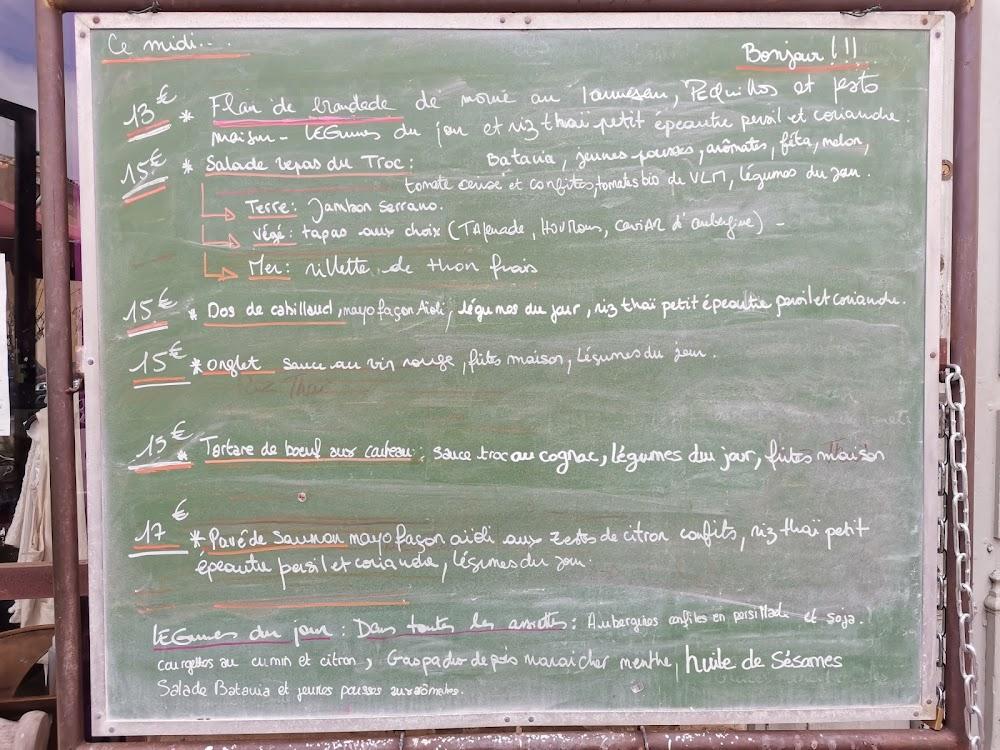 Ce midi....
Bonjour!!!
13€ * Flan de brandade de morue au Parmesan, Pequillos et pesto
maison - Légumes du jour et riz thaï petit épeautre persil et coriandre.
15€ * Salade repas du Troc: Batavia, jeunes pousses, arômates, féta, melon,
tomate cerise et confites, tomates bio de VLM, légumes du jour.
Terre: Jambon Serrano.
Végé: tapas aux choix (TApenade, Houmous, Caviar d'aubergine) -
Mer: rillette de thon frais
15€ * Dos de cabillaud, mayo façon Aïoli, légumes du jour, riz thaï petit épeautre persil et coriandre.
15€ * onglet sauce au vin rouge, frites maison, Légumes du jour.
15€ * Tartare de boeuf aux couteau: sauce troc au cognac, légumes du jour, frites maison
17€ * Pavé de Saumon mayo façon aïoli aux zestes de citron confits, riz thaï petit
épeautre persil et coriandre, légumes du jour.
LEGumes du jour: Dans toutes les assiettes: Aubergines confites en persillade et soja!
courgettes au cumin et citron, Gaspacho de pois maraicher menthe, huile de Sésames
Salade Batavia et jeunes pousses aux arômates.